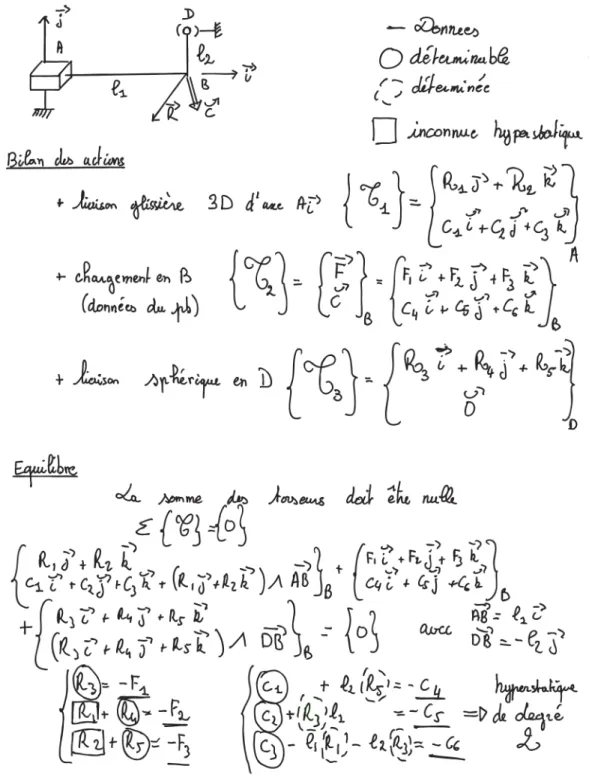 j⃗
A
D
l₂
l₁
B
i⃗
R⃗
C⃗
— Données
◯ déterminable
déterminée
□ inconnue hyperstatique
Bilan des actions
+ liaison glissière 3D d'axe A i⃗ {𝒯₁} = {R₁ j⃗ + R₂ k⃗
C₁ i⃗ + C₂ j⃗ + C₃ k⃗}A
+ chargement en B {𝒯₂} = {F⃗ C⃗}B = {F₁ i⃗ + F₂ j⃗ + F₃ k⃗
(données du pb) C₄ i⃗ + C₅ j⃗ + C₆ k⃗}B
+ liaison sphérique en D {𝒯₃} = {R₃ i⃗ + R₄ j⃗ + R₅ k⃗
0⃗}D
Equilibre
La somme des torseurs doit être nulle
Σ {𝒯} = {0}
{R₁ j⃗ + R₂ k⃗
C₁ i⃗ + C₂ j⃗ + C₃ k⃗ + (R₁ j⃗ + R₂ k⃗) ∧ AB⃗}B + {F₁ i⃗ + F₂ j⃗ + F₃ k⃗
C₄ i⃗ + C₅ j⃗ + C₆ k⃗}B
+ {R₃ i⃗ + R₄ j⃗ + R₅ k⃗
(R₃ i⃗ + R₄ j⃗ + R₅ k⃗) ∧ DB⃗}B = {0} avec AB⃗ = l₁ i⃗
DB⃗ = -l₂ j⃗
R₃ = -F₁
R₁ + R₄ = -F₂
R₂ + R₅ = -F₃
C₁ + l₂ R₅ = -C₄
C₂ + R₃ l₂ = -C₅
C₃ - l₁ R₁ - l₂ R₃ = -C₆
hyperstatique
=> de degré
2